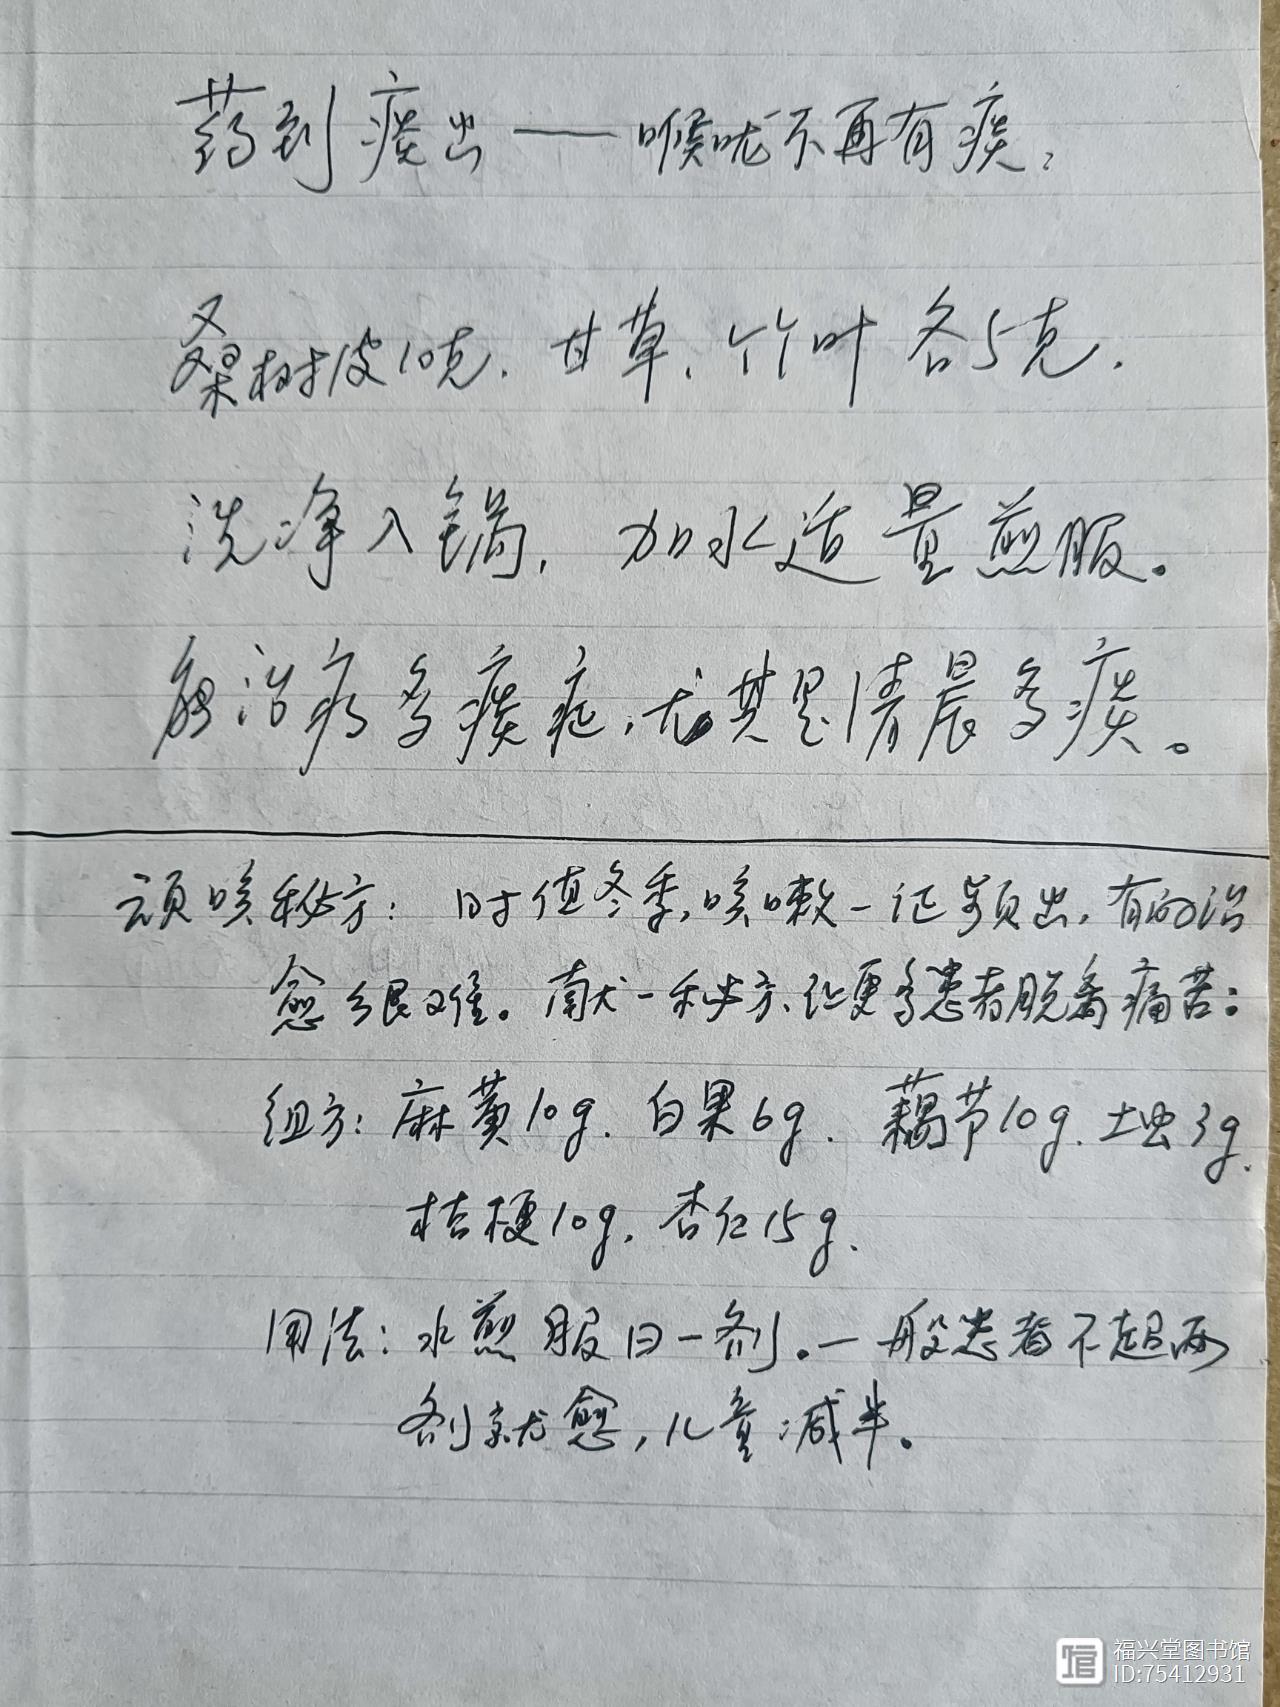 药到痰出——喉咙不再有痰，
桑树皮10克.甘草、竹叶各5克.
洗净入锅,加水适量煎服。
能治疗多痰症,尤其是清晨多痰。
顽咳秘方：时值冬季,咳嗽一证频出,有的治
愈很难。献一秘方、让更多患者脱离痛苦:
组方：麻黄10g.白果6g.藕节10g.土虫3g.
桔梗10g.杏仁15g.
用法：水煎服日一剂。一般患者不超两
剂就愈,儿童减半。
福兴堂图书馆
ID:75412931